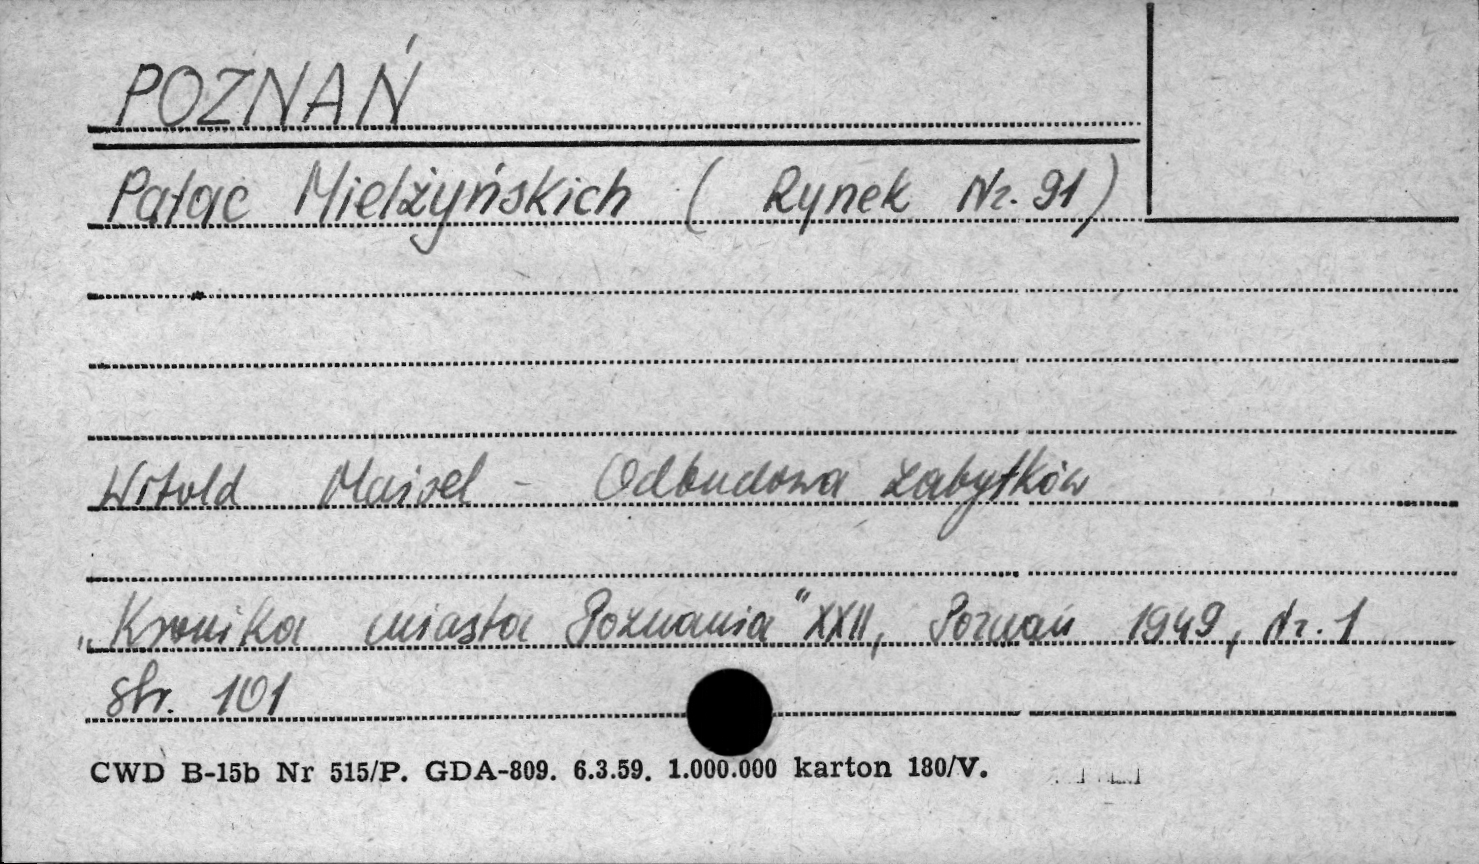 POZNAŃ
Pałac Mielżyńskich ( Rynek Nr. 91 )
Witold Maisel - Odbudowa zabytków
„Kronika miasta Poznania" XXII, Poznań 1949, Nr. 1
str. 101
CWD B-15b Nr 515/P. GDA-809. 6.3.59. 1.000.000 karton 180/V.